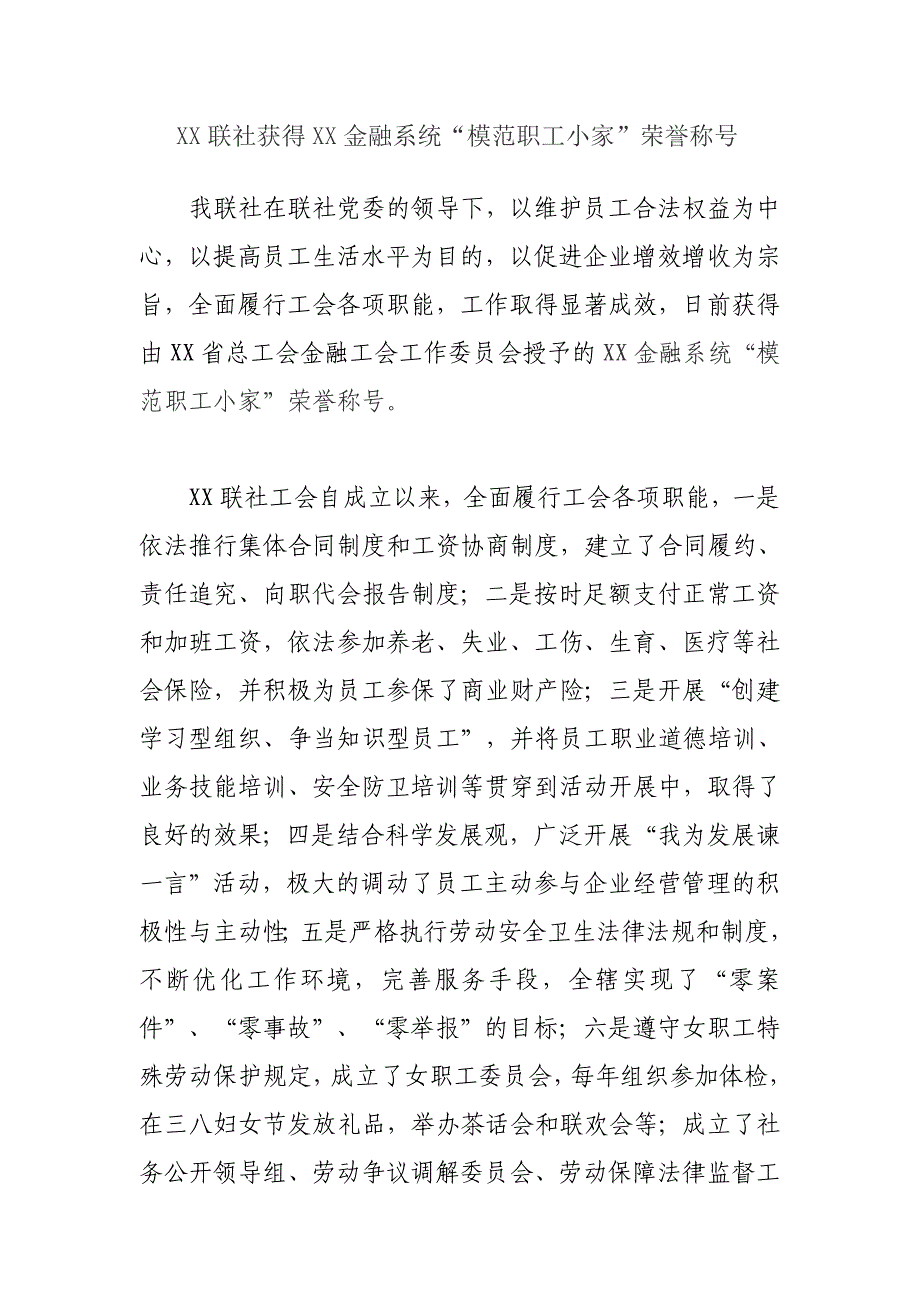 XX 联社获得 XX 金融系统“模范职工小家”荣誉称号
我联社在联社党委的领导下，以维护员工合法权益为中
心，以提高员工生活水平为目的，以促进企业增效增收为宗
旨，全面履行工会各项职能，工作取得显著成效，日前获得
由 XX 省总工会金融工会工作委员会授予的 XX 金融系统“模
范职工小家”荣誉称号。
XX 联社工会自成立以来，全面履行工会各项职能，一是
依法推行集体合同制度和工资协商制度，建立了合同履约、
责任追究、向职代会报告制度；二是按时足额支付正常工资
和加班工资，依法参加养老、失业、工伤、生育、医疗等社
会保险，并积极为员工参保了商业财产险；三是开展“创建
学习型组织、争当知识型员工”，并将员工职业道德培训、
业务技能培训、安全防卫培训等贯穿到活动开展中，取得了
良好的效果；四是结合科学发展观，广泛开展“我为发展谏
一言”活动，极大的调动了员工主动参与企业经营管理的积
极性与主动性；五是严格执行劳动安全卫生法律法规和制度，
不断优化工作环境，完善服务手段，全辖实现了“零案
件”、“零事故”、“零举报”的目标；六是遵守女职工特
殊劳动保护规定，成立了女职工委员会，每年组织参加体检，
在三八妇女节发放礼品，举办茶话会和联欢会等；成立了社
务公开领导组、劳动争议调解委员会、劳动保障法律监督工